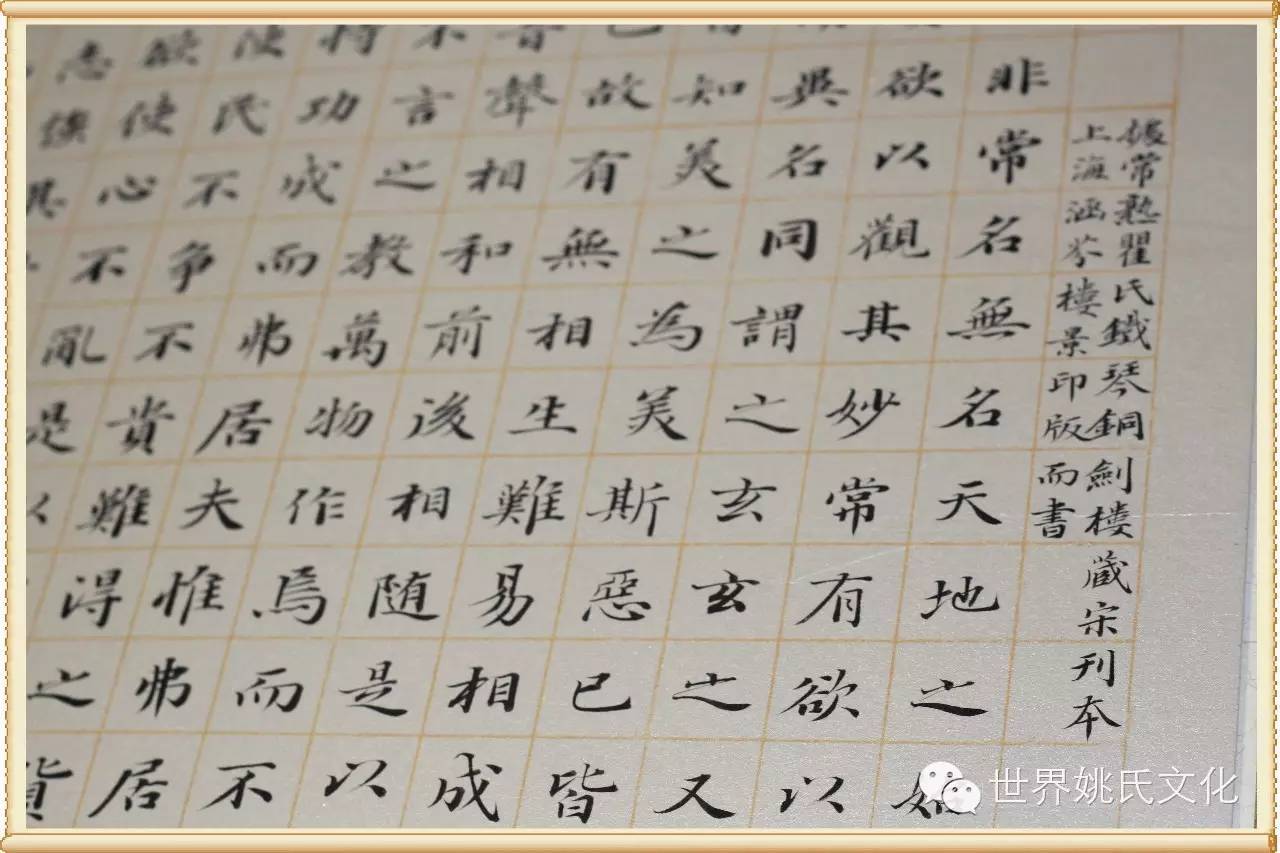 據常熟瞿氏鐵琴銅劍樓藏宋刊本
上海涵芬樓景印版而書
非常名無名天地之始
欲以觀其妙常有欲以
異名同謂之玄玄之又
知美之為美斯惡已皆
已故有無相生難易相成
音聲相和前後相随是以
不言之教萬物作焉而不
恃功成而弗居夫惟弗居
使民不爭不貴難得之貨
欲使心不亂是以
世界姚氏文化